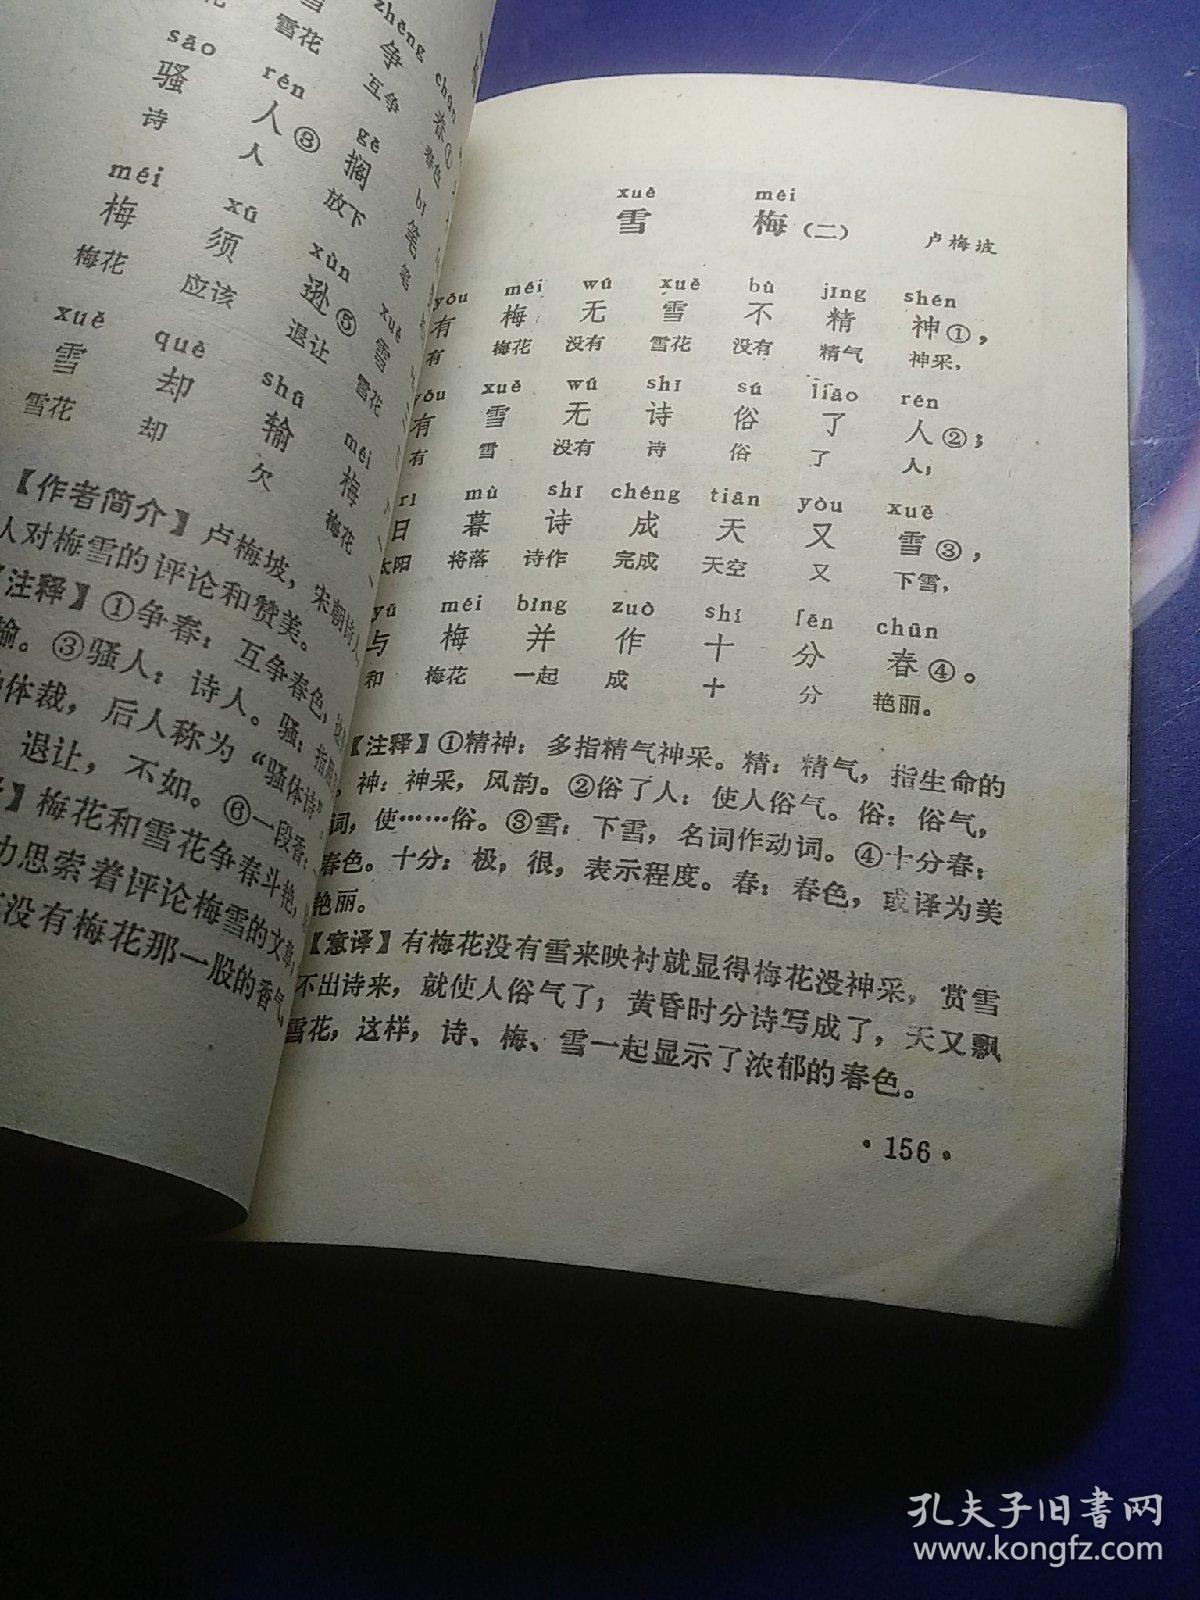 zhēng
雪花 争
互争 春①
春色
sāo rén gē bǐ
骚 人⑧ 搁 笔
诗 人 放下 笔
méi xū xùn xuě
梅 须 逊⑤ 雪
梅花 应该 退让 雪花
xuě què shū méi
雪 却 输 梅
雪花 却 欠 梅花
【作者简介】卢梅坡，宋朝诗人
人对梅雪的评论和赞美。
【注释】①争春：互争春色，
输。③骚人：诗人。骚：指
体裁，后人称为“骚体诗”。
退让，不如。⑥一段香：
】梅花和雪花争春斗艳，
力思索着评论梅雪的文章，
没有梅花那一股的香气
xuě méi
雪 梅（二） 卢梅坡
yǒu méi wú xuě bù jīng shén
有 梅 无 雪 不 精 神①，
有 梅花 没有 雪花 没有 精气 神采，
yǒu xuě wú shī sú liǎo rén
有 雪 无 诗 俗 了 人②；
有 雪 没有 诗 俗 了 人；
rì mù shī chéng tiān yòu xuě
日 暮 诗 成 天 又 雪③，
太阳 将落 诗作 完成 天空 又 下雪，
yǔ méi bìng zuò shí fēn chūn
与 梅 并 作 十 分 春④。
和 梅花 一起 成 十 分 艳丽。
【注释】①精神：多指精气神采。精：精气，指生命的
，神：神采，风韵。②俗了人：使人俗气。俗：俗气，
词，使……俗。③雪：下雪，名词作动词。④十分春：
春色。十分：极，很，表示程度。春：春色，或译为美
艳丽。
【意译】有梅花没有雪来映衬就显得梅花没神采，赏雪
不出诗来，就使人俗气了；黄昏时分诗写成了，天又飘
雪花，这样，诗、梅、雪一起显示了浓郁的春色。
·156·
孔夫子旧书网
www.kongfz.com